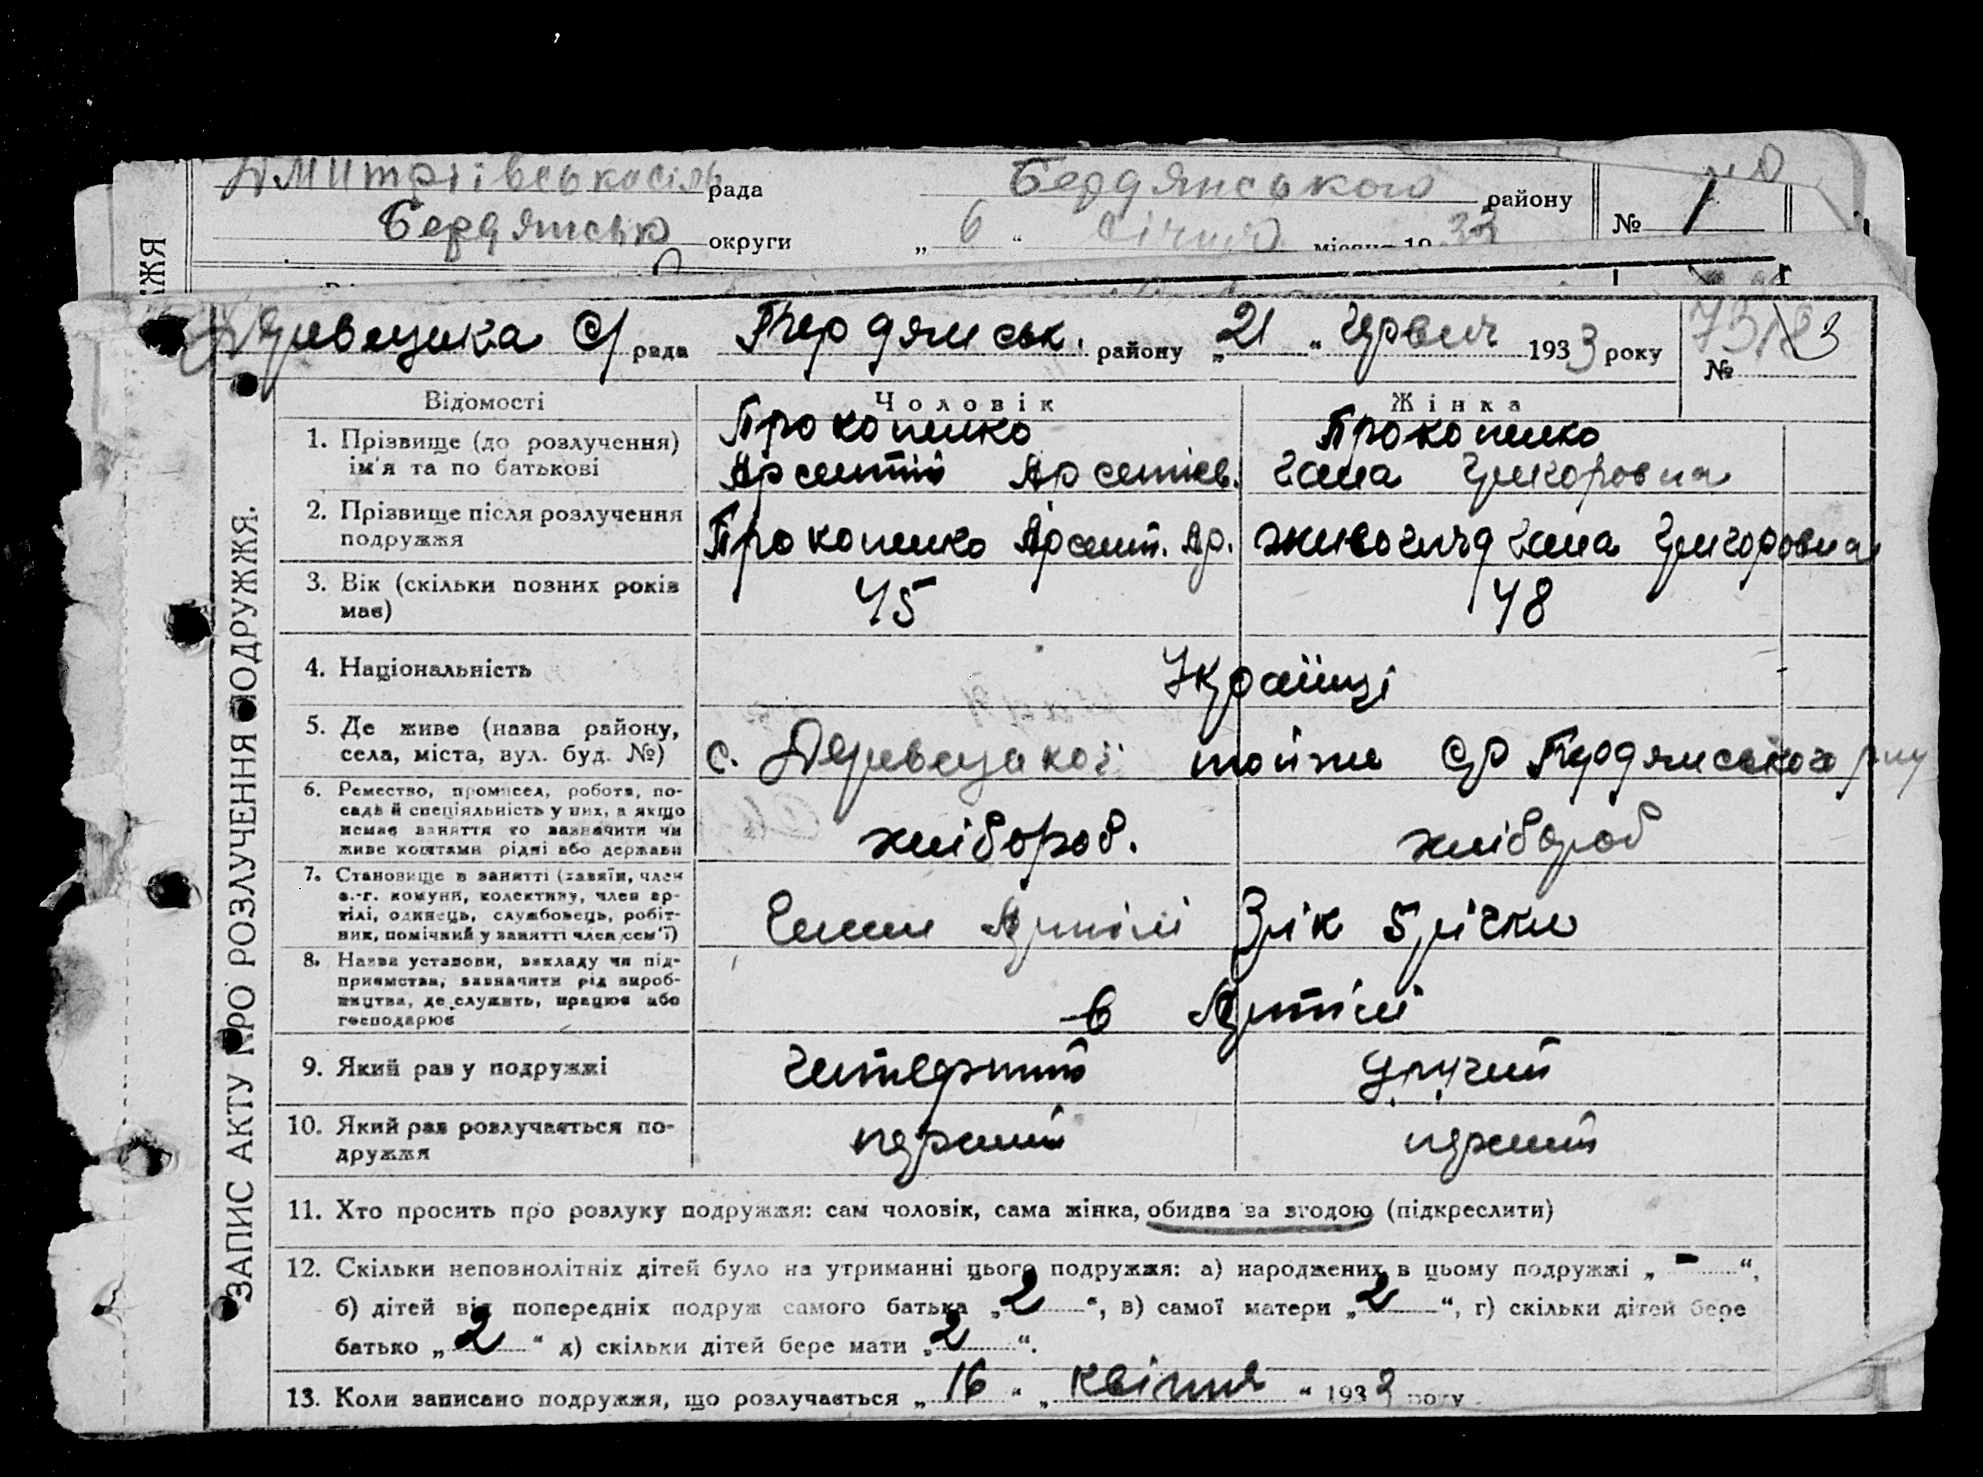 Дмитрівська сіль рада Бердянського району
Бердянська округи „ 6 “ Січня місяця 19 33 № 1
ЖЯ
Деревецька С/ рада Бердянськ. району „ 21 “ Червня 193 3 року №
ЗАПИС АКТУ ПРО РОЗЛУЧЕННЯ ПОДРУЖЖЯ.
Відомості Чоловік Жінка
1. Прізвище (до розлучення) Прокопенко Прокопенко
ім'я та по батькові Арсентій Арсентіев. Гана Григоровна
2. Прізвище після розлучення
подружжя Прокопенко Арсент. Ар. Гана Григоровна
3. Вік (скільки повних років 45 48
має)
4. Національність Українці
5. Де живе (назва району,
села, міста, вул. буд. №) с. Деревецької тойже С/р Бердянського р-ну
6. Ремество, промисел, робота, по-
сада й спеціяльність у них, а якщо
немає заняття то зазначити чи хлібороб. хлібороб
живе коштами рідні або держави
7. Становище в занятті (хазяїн, член
с.-г. комуни, колективу, член ар-
тілі, одинець, службовець, робіт- Член Артілі
ник, помічний у занятті член сем'ї)
8. Назва установи, закладу чи під-
приємства, зазначити рід вироб-
ництва, де служить, працює або в Артілі
господарює
9. Який раз у подружжі Читвертий другий
10. Який раз розлучається по- перший перший
дружжя
11. Хто просить про розлуку подружжя: сам чоловік, сама жінка, обидва за згодою (підкреслити)
12. Скільки неповнолітніх дітей було на утриманні цього подружжя: а) народжених в цьому подружжі „ - “,
б) дітей від попередніх подруж самого батька „ 2 “, в) самої матери „ 2 “, г) скільки дітей бере
батько „ 2 “ д) скільки дітей бере мати „ 2 “.
13. Коли записано подружжя, що розлучається „ 16 “ „ квітня “ 193 3 року